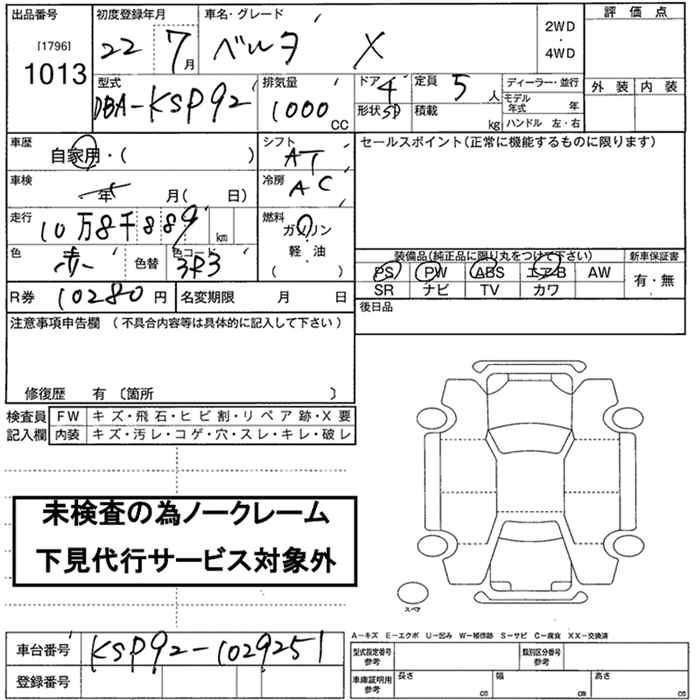 出品番号
[1796]
1013
初度登録年月
22 7月
車名・グレード
ベルタ X
2WD
・
4WD
評価点
外装 内装
型式
DBA-KSP92
排気量
1000 CC
ドア 4
形状 SD
定員 5 人
積載 kg
ディーラー・並行
モデル年式 年
ハンドル 左・右
車歴
自家用・( )
車検
年 月( 日)
走行
10万8千889 km
色
赤
色替
色コード
3R3
シフト
AT
冷房
AC
燃料
ガソリン
軽・油
( )
セールスポイント(正常に機能するものに限ります)
装備品(純正品に限り丸をつけて下さい)
PS PW ABS エアB AW
SR ナビ TV カワ
新車保証書
有・無
R券 10280 円
名変期限 月 日
後日品
注意事項申告欄 (不具合内容等は具体的に記入して下さい)
修復歴 有〔箇所 〕
検査員記入欄
FW キズ・飛石・ヒビ割・リペア跡・X要
内装 キズ・汚レ・コゲ・穴・スレ・キレ・破レ
未検査の為ノークレーム
下見代行サービス対象外
スペア
A-キズ E-エクボ U-凹み W-補修跡 S-サビ C-腐食 XX-交換済
車台番号 KSP92-1029251
登録番号
型式指定番号参考
類別区分番号参考
車庫証明用参考
長さ cm
幅 cm
高さ cm